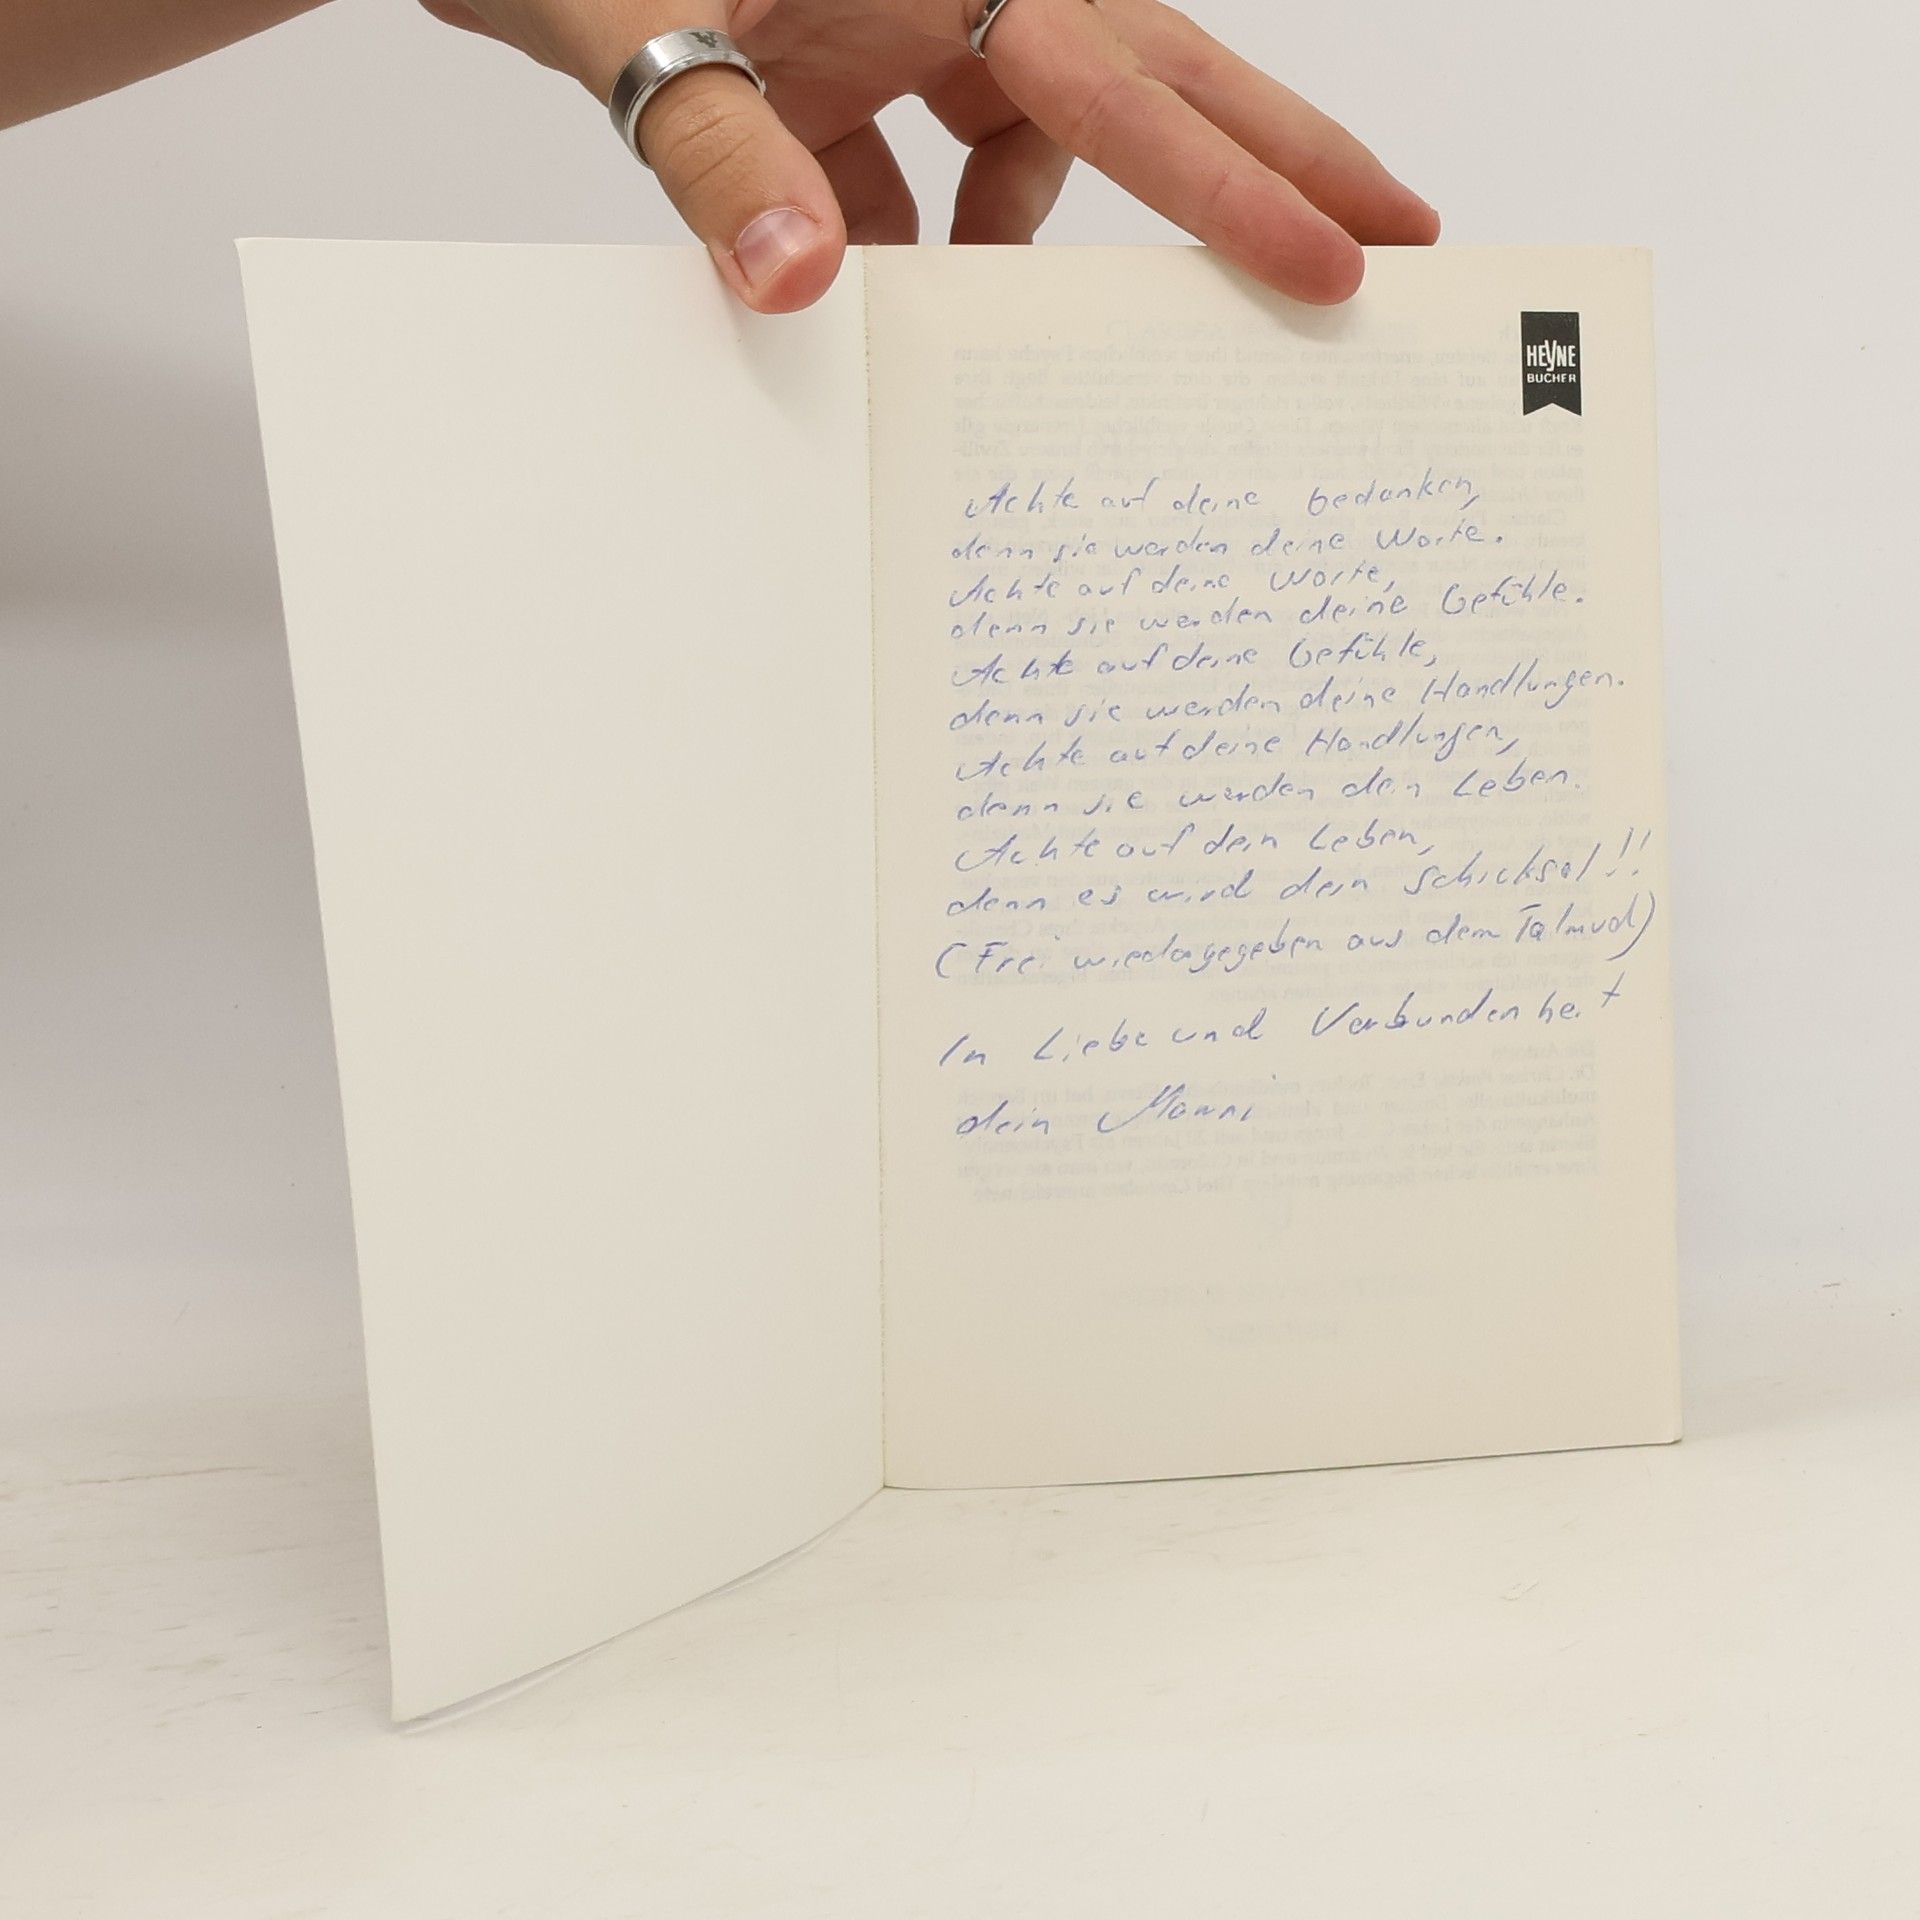 HEYNE
BÜCHER
Achte auf deine Gedanken,
denn sie werden deine Worte.
Achte auf deine Worte,
denn sie werden deine Gefühle.
Achte auf deine Gefühle,
denn sie werden deine Handlungen.
Achte auf deine Handlungen,
denn sie werden dein Leben.
Achte auf dein Leben,
denn es wird dein Schicksal!!
(Frei wiedergegeben aus dem Talmud)
In Liebe und Verbundenheit
dein Manni